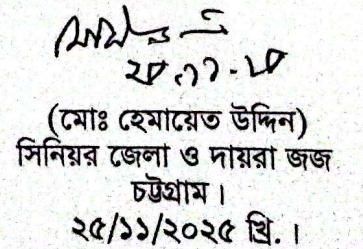 (মোঃ হেমায়েত উদ্দিন)
সিনিয়র জেলা ও দায়রা জজ
চট্টগ্রাম।
২৫/১১/২০২৫ খ্রি.।